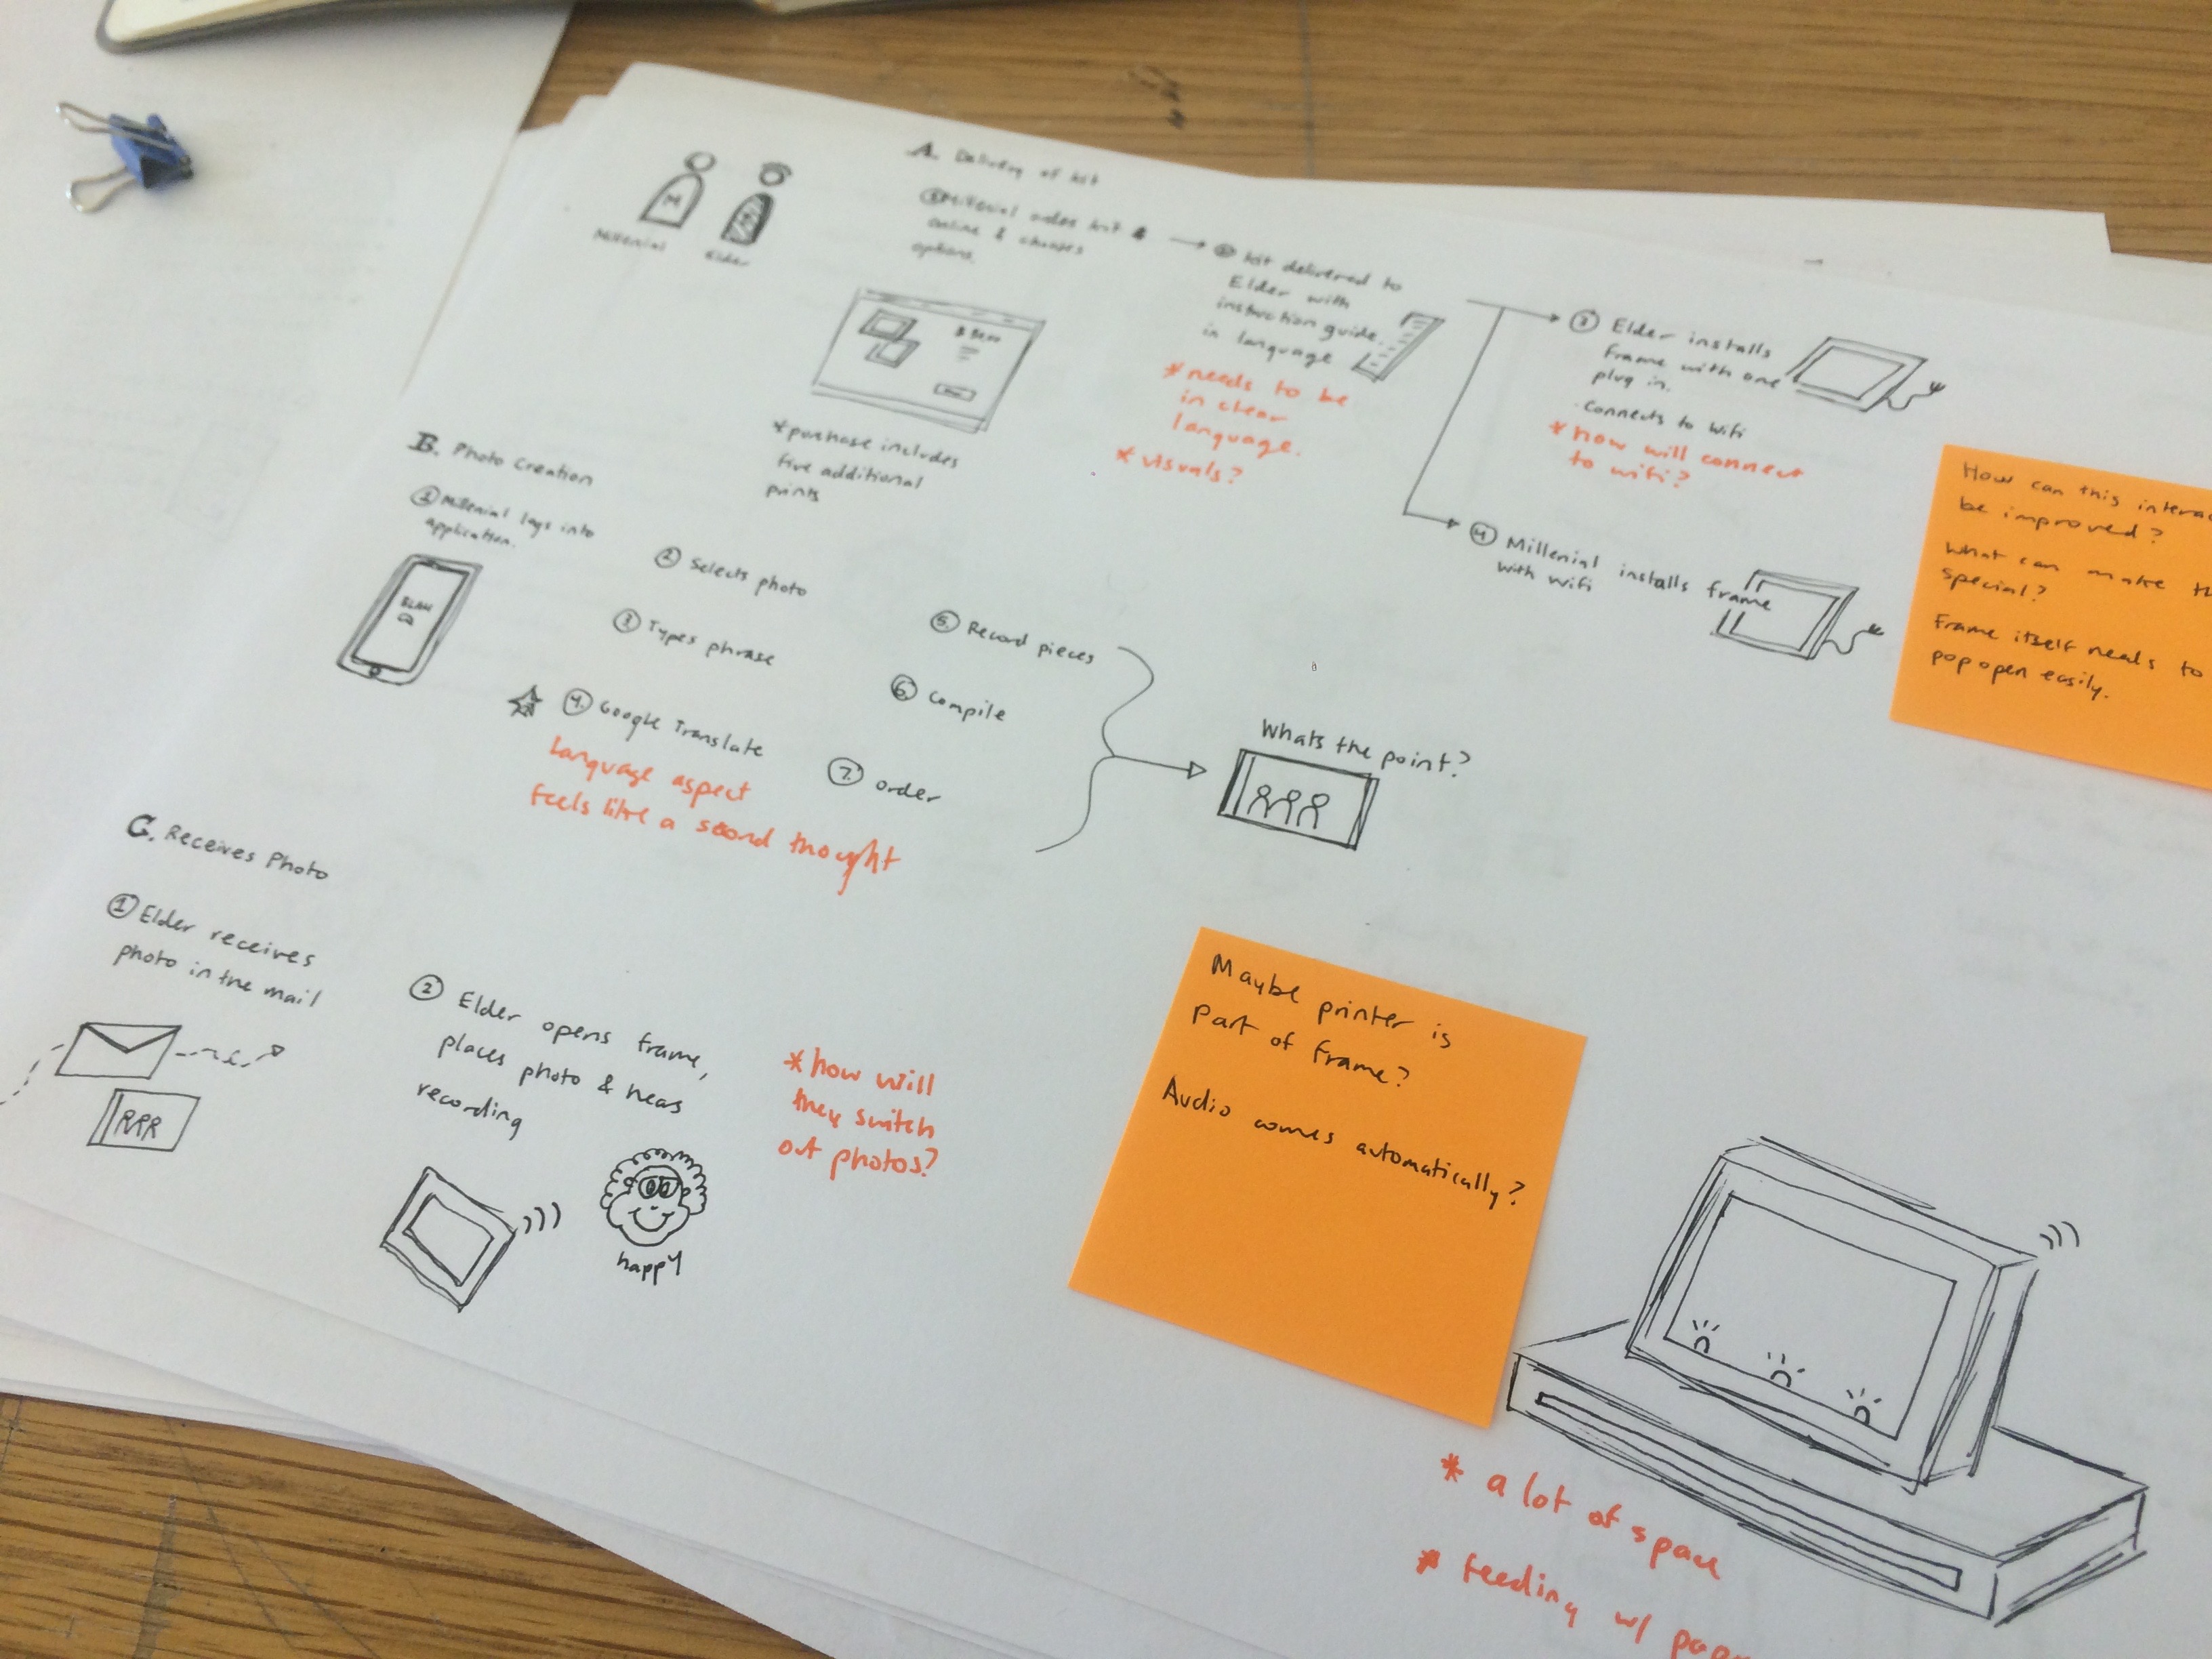 M
Millenial
Elder
A. Delivery of kit
① Millenial orders kit
online & chooses
options.
*purchase includes
five additional
prints
② kit delivered to
Elder with
instruction guide.
in language
*needs to be
in clear
language.
* visuals?
③ Elder installs
frame with one
plug in.
. Connects to wifi
* how will connect
to wifi?
④ Millenial installs frame
with wifi
How can this
be improved?
What can make
special?
Frame itself needs to
pop open easily.
B. Photo Creation
① Millenial logs into
application.
BLAH
② Selects photo
③ Types phrase
④ Google Translate
Language aspect
feels like a second thought
⑤ Record pieces
⑥ Compile
⑦ order
Whats the point?
C. Receives Photo
① Elder receives
photo in the mail
② Elder opens frame,
places photo & hears
recording
happy
* how will
they switch
out photos?
Maybe printer is
part of frame?
Audio comes automatically?
* a lot of space
* feeding w/